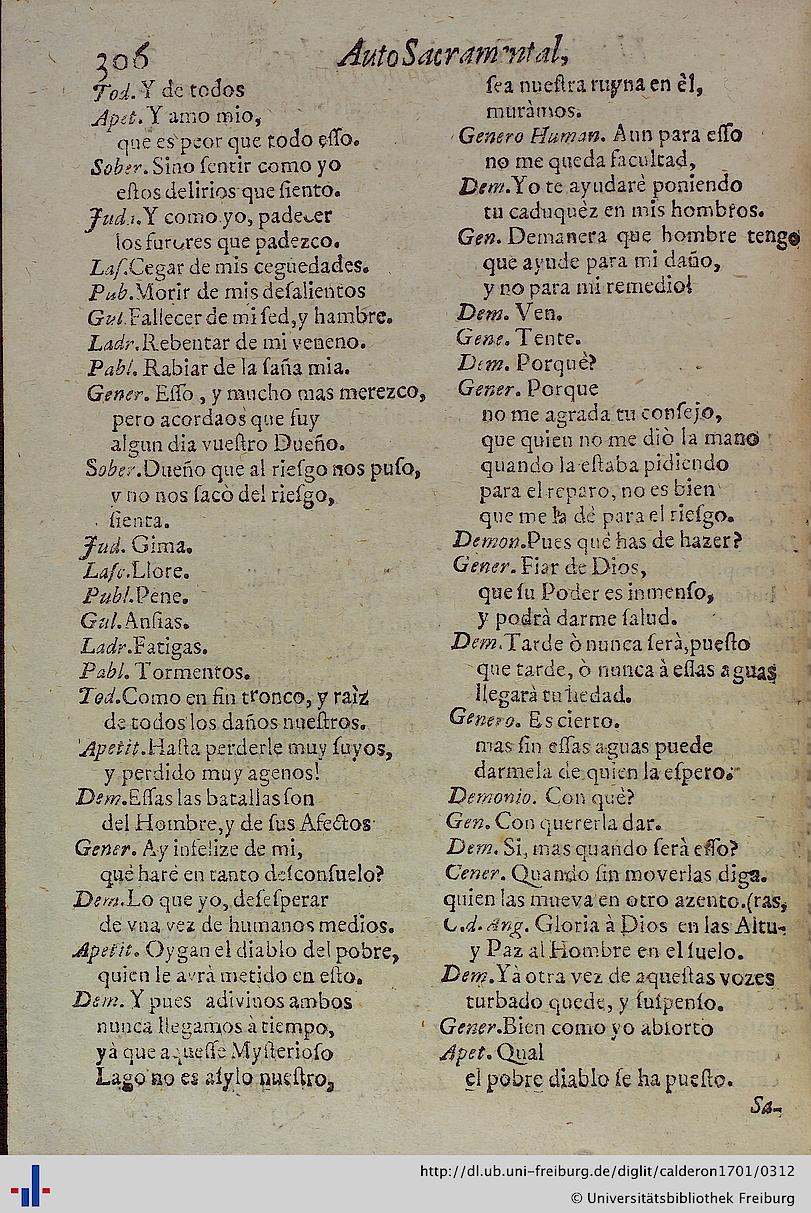 306
Auto Sacramental,
Tod. Y de todos
Apet. Y amo mio,
que es peor que todo eſſo.
Sober. Sino ſentir como yo
eſtos delirios que ſiento.
Judi. Y como yo, padecer
los furores que padezco.
Laſ. Cegar de mis ceguedades.
Pub. Morir de mis deſalientos
Gul. Fallecer de mi ſed, y hambre.
Ladr. Rebentar de mi veneno.
Pabl. Rabiar de la ſaña mia.
Gener. Eſſo , y mucho mas merezco,
pero acordaos que fuy
algun dia vueſtro Dueño.
Sober. Dueño que al rieſgo nos puſo,
y no nos ſacò del rieſgo,
ſienta.
Jud. Gima.
Laſc. Llore.
Publ. Pene.
Gul. Anſias.
Ladr. Fatigas.
Pabl. Tormentos.
Tod. Como en fin tronco, y raìz
de todos los daños nueſtros.
Apetit. Haſta perderle muy ſuyos,
y perdido muy agenos!
Dem. Eſſas las batallas ſon
del Hombre, y de ſus Afectos
Gener. Ay infelize de mi,
què harè en tanto deſconſuelo?
Dem. Lo que yo, deſeſperar
de vna vez de humanos medios.
Apetit. Oygan el diablo del pobre,
quien le avrà metido en eſto.
Dem. Y pues adivinos ambos
nunca llegamos à tiempo,
yà que aqueſſe Myſterioſo
Lago no es aſylo nueſtro,
ſea nueſtra ruyna en èl,
muràmos.
Genero Human. Aun para eſſo
no me queda facultad,
Dem. Yo te ayudarè poniendo
tu caduquèz en mis hombros.
Gen. Demanera que hombre tengo
que ayude para mi daño,
y no para mi remedio!
Dem. Ven.
Gene. Tente.
Dem. Porquè?
Gener. Porque
no me agrada tu conſejo,
que quien no me diò la mano
quando la eſtaba pidiendo
para el reparo, no es bien
que me la dè para el rieſgo.
Demon. Pues què has de hazer?
Gener. Fiar de Dios,
que ſu Poder es inmenſo,
y podrà darme ſalud.
Dem. Tarde ò nunca ſerà, pueſto
que tarde, ò nunca à eſſas aguas
llegarà tu hedad.
Genero. Es cierto.
mas ſin eſſas aguas puede
darmela de quien la eſpero.
Demonio. Con què?
Gen. Con quererla dar.
Dem. Si, mas quando ſerà eſſo?
Gener. Quando ſin moverlas diga.
quien las mueva en otro azento. (ras,
C. d. Ang. Gloria à Dios en las Altu-
y Paz al Hombre en el ſuelo.
Dem. Yà otra vez de aqueſtas vozes
turbado quede, y ſuſpenſo.
Gener. Bien como yo abſorto
Apet. Qual
el pobre diablo ſe ha pueſto.
Sa-
http://dl.ub.uni-freiburg.de/diglit/calderon1701/0312
© Universitätsbibliothek Freiburg